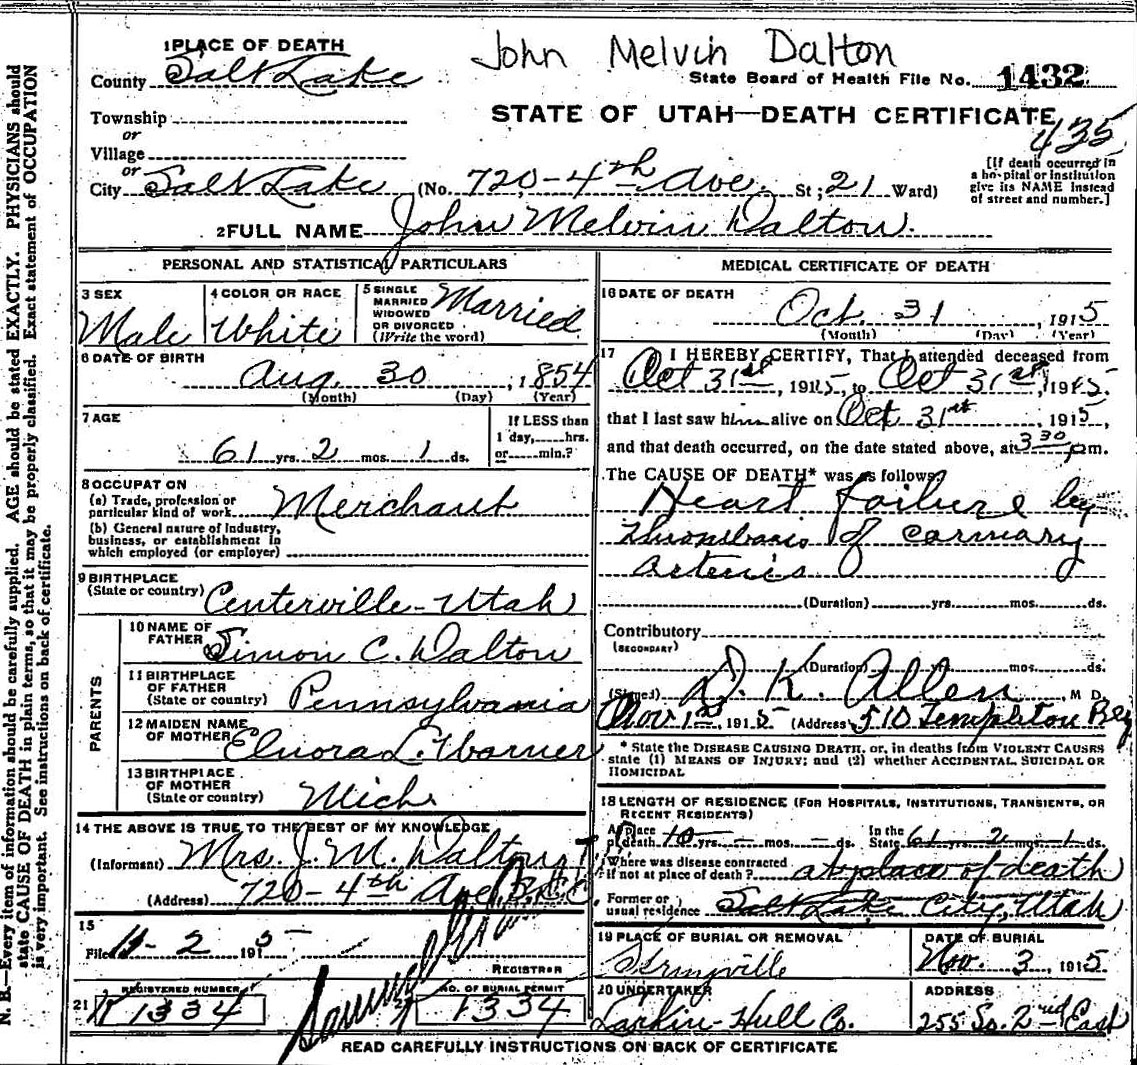 John Melvin Dalton
1 PLACE OF DEATH
County Salt Lake
State Board of Health File No. 1432
STATE OF UTAH—DEATH CERTIFICATE
435
Township
or
Village
or
City Salt Lake (No. 720-4th Ave. St; 21 Ward)
[If death occurred in
a hospital or institution
give its NAME instead
of street and number.]
2 FULL NAME John Melvin Dalton.
PERSONAL AND STATISTICAL PARTICULARS
3 SEX
Male
4 COLOR OR RACE
White
5 SINGLE
MARRIED
WIDOWED
OR DIVORCED
(Write the word)
Married
6 DATE OF BIRTH
Aug. 30, 1854
(Month) (Day) (Year)
7 AGE
61 yrs. 2 mos. 1 ds.
If LESS than
1 day, hrs.
or min.?
8 OCCUPATION
(a) Trade, profession or
particular kind of work Merchant
(b) General nature of industry,
business, or establishment in
which employed (or employer)
9 BIRTHPLACE
(State or country) Centerville-Utah
PARENTS
10 NAME OF
FATHER Simon C. Dalton
11 BIRTHPLACE
OF FATHER
(State or country) Pennsylvania
12 MAIDEN NAME
OF MOTHER Elnora L. Warner
13 BIRTHPLACE
OF MOTHER
(State or country) Mich.
14 THE ABOVE IS TRUE TO THE BEST OF MY KNOWLEDGE
(Informant) Mrs. J. M. Dalton
(Address) 720-4th Ave.
15
Filed 11-2 1915
REGISTRAR
REGISTERED NUMBER
21 1334
NO. OF BURIAL PERMIT
1334
MEDICAL CERTIFICATE OF DEATH
16 DATE OF DEATH
Oct. 31, 1915
(Month) (Day) (Year)
17 I HEREBY CERTIFY, That I attended deceased from
Oct 31st, 1915, to Oct 31st, 1915,
that I last saw him alive on Oct 31st 1915,
and that death occurred, on the date stated above, at 3 30 pm.
The CAUSE OF DEATH* was as follows:
Heart failure by
Thrombosis of coronary
arteries
(Duration) yrs. mos. ds.
Contributory
(SECONDARY)
(Duration) yrs. mos. ds.
(Signed) D. K. Allen, M D.
Nov 1st, 1915 (Address) 510 Templeton Blg
* State the DISEASE CAUSING DEATH, or, in deaths from VIOLENT CAUSES
state (1) MEANS OF INJURY; and (2) whether ACCIDENTAL, SUICIDAL OR
HOMICIDAL
18 LENGTH OF RESIDENCE (FOR HOSPITALS, INSTITUTIONS, TRANSIENTS, OR
RECENT RESIDENTS)
At place
of death 10 yrs. — mos. — ds. In the
State 61 yrs. 2 mos. 1 ds.
Where was disease contracted
if not at place of death? at place of death
Former or
usual residence Salt Lake City, Utah
19 PLACE OF BURIAL OR REMOVAL
Springville
DATE OF BURIAL
Nov. 3, 1915
20 UNDERTAKER
Larkin-Hull Co.
ADDRESS
255 So. 2nd East
READ CAREFULLY INSTRUCTIONS ON BACK OF CERTIFICATE
N. B.—Every item of information should be carefully supplied. AGE should be stated EXACTLY. PHYSICIANS should
state CAUSE OF DEATH in plain terms, so that it may be properly classified. Exact statement of OCCUPATION
is very important. See instructions on back of certificate.